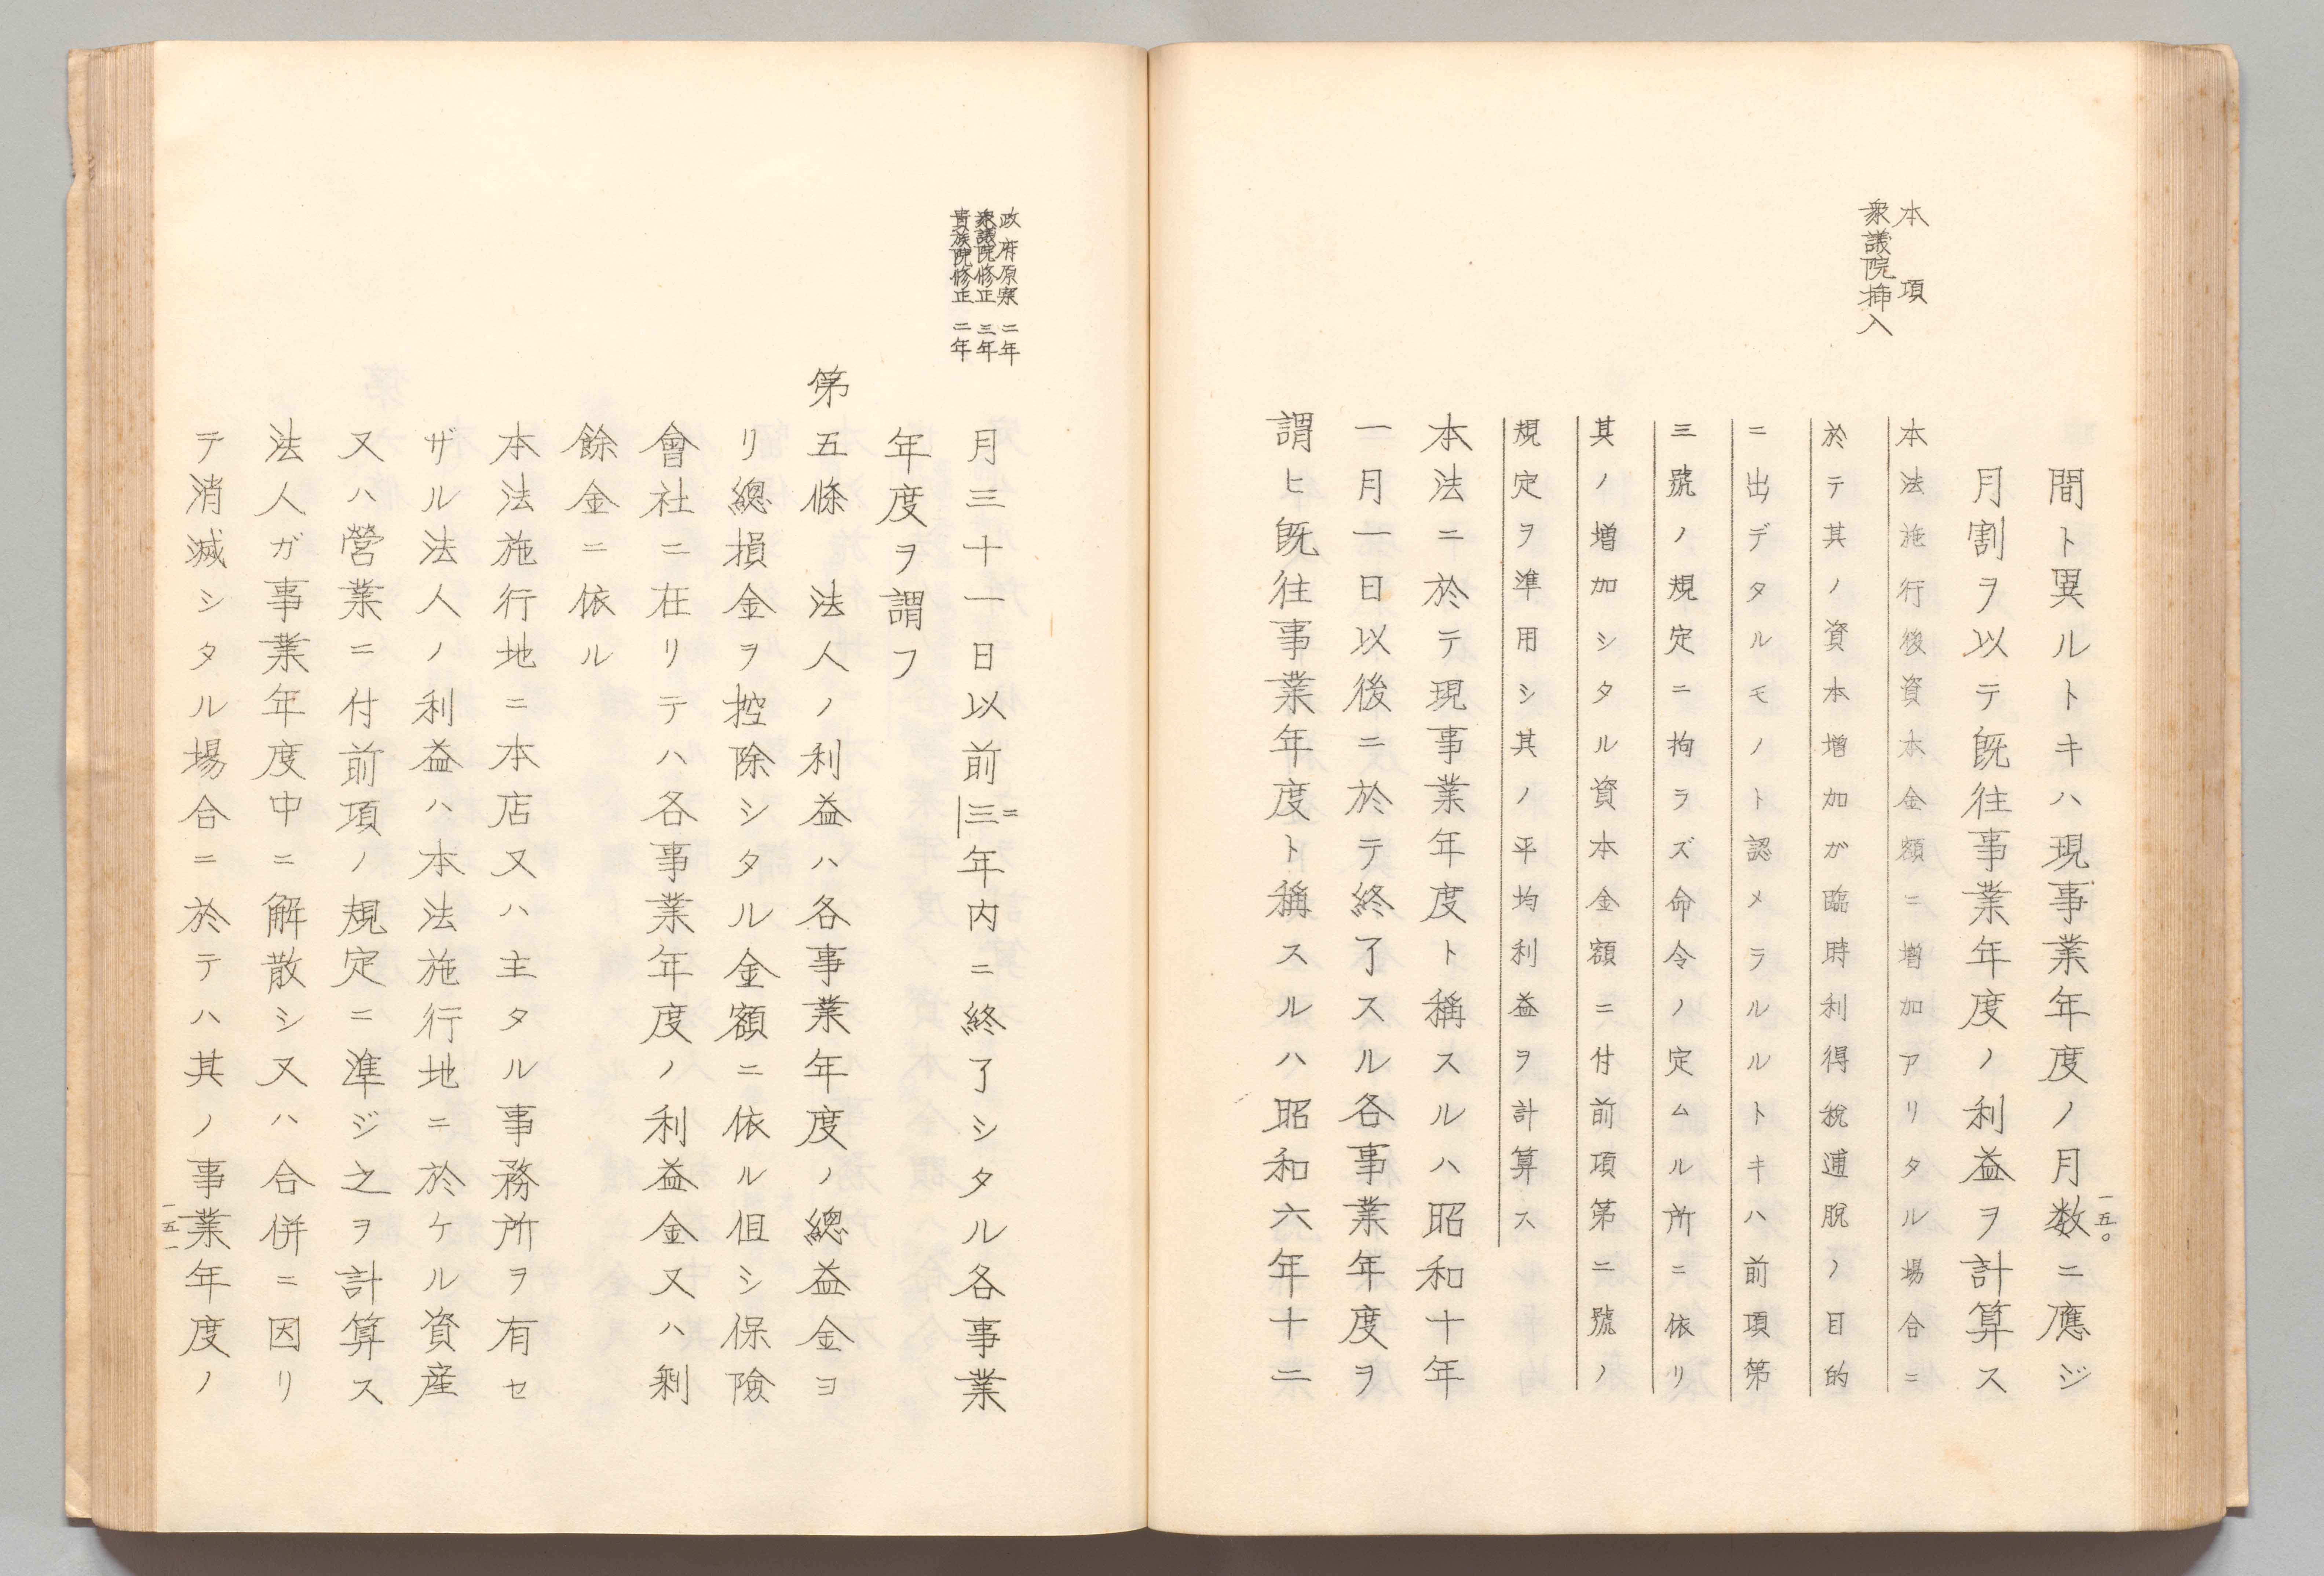 間ト異ルトキハ現事業年度ノ月数ニ應ジ
月割ヲ以テ既往事業年度ノ利益ヲ計算ス
本項
衆議院挿入
本法施行後資本金額ニ増加アリタル場合ニ
於テ其ノ資本増加ガ臨時利得税逋脱ノ目的
ニ出デタルモノト認メラルルトキハ前項第
三號ノ規定ニ拘ラズ命令ノ定ムル所ニ依リ
其ノ増加シタル資本金額ニ付前項第二號ノ
規定ヲ準用シ其ノ平均利益ヲ計算ス
本法ニ於テ現事業年度ト稱スルハ昭和十年
一月一日以後ニ於テ終了スル各事業年度ヲ
謂ヒ既往事業年度ト稱スルハ昭和六年十二
一五〇
政府原案 二年
衆議院修正 三年
貴族院修正 二年
月三十一日以前三年内ニ終了シタル各事業
二
年度ヲ謂フ
第五條 法人ノ利益ハ各事業年度ノ總益金ヨ
リ總損金ヲ控除シタル金額ニ依ル但シ保険
會社ニ在リテハ各事業年度ノ利益金又ハ剰
餘金ニ依ル
本法施行地ニ本店又ハ主タル事務所ヲ有セ
ザル法人ノ利益ハ本法施行地ニ於ケル資産
又ハ營業ニ付前項ノ規定ニ準ジ之ヲ計算ス
法人ガ事業年度中ニ解散シ又ハ合併ニ因リ
テ消滅シタル場合ニ於テハ其ノ事業年度ノ
一五一